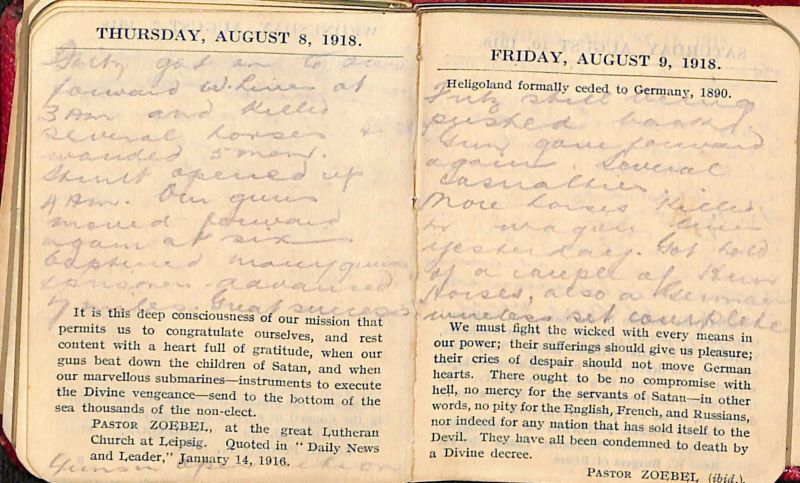 THURSDAY, AUGUST 8, 1918.
got on to our
forward W. Lines at
3 Am and killed
several horses &
wounded 5 men.
Stunt opened up
4 Am. Our guns
moved forward
again at six
captured many guns
prisoners advanced
7 miles. Great success
It is this deep consciousness of our mission that
permits us to congratulate ourselves, and rest
content with a heart full of gratitude, when our
guns beat down the children of Satan, and when
our marvellous submarines—instruments to execute
the Divine vengeance—send to the bottom of the
sea thousands of the non-elect.
PASTOR ZOEBEL, at the great Lutheran
Church at Leipsig. Quoted in "Daily News
and Leader," January 14, 1916.
FRIDAY, AUGUST 9, 1918.
Heligoland formally ceded to Germany, 1890.
Fritz still being
pushed back.
Guns gone forward
again. Several
casualties.
More horses killed
wagon lines
yesterday. Got hold
of a couple of Hun
Horses, also a German
wireless set complete
We must fight the wicked with every means in
our power; their sufferings should give us pleasure;
their cries of despair should not move German
hearts. There ought to be no compromise with
hell, no mercy for the servants of Satan—in other
words, no pity for the English, French, and Russians,
nor indeed for any nation that has sold itself to the
Devil. They have all been condemned to death by
a Divine decree.
PASTOR ZOEBEL (ibid.).